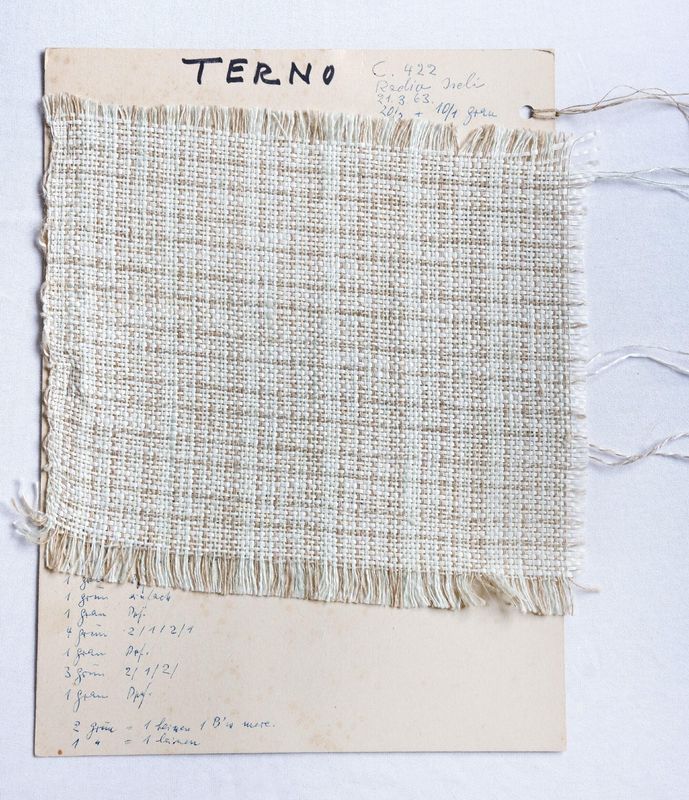 TERNO
C. 422
Radio
21.3.63.
20/2 + 10/1 grau
1
1 grün einfach
1 grau Dpf.
4 grün 2/1/2/1
1 grau Dpf.
3 grün 2/1/2/
1 grau Dpf.
2 grün = 1 leinen 1 B'w merc.
1 " = 1 leinen